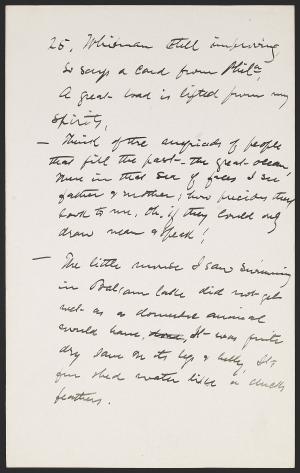 25, Whitman still improving
So says a card from Phila,
A great load is lifted from my
spirits,
— Think of the myriads of people
that fill the past – the great ocean,
there in that sea of faces I see
father & mother; how precious they
look to me, Oh, if they could only
draw near & speak!
— The little mouse I saw swimming
in Balsam Lake did not get
wet as a domestic animal
would have, It was quite
dry save on its legs & belly, Its
fur shed water like a ducks
feathers.